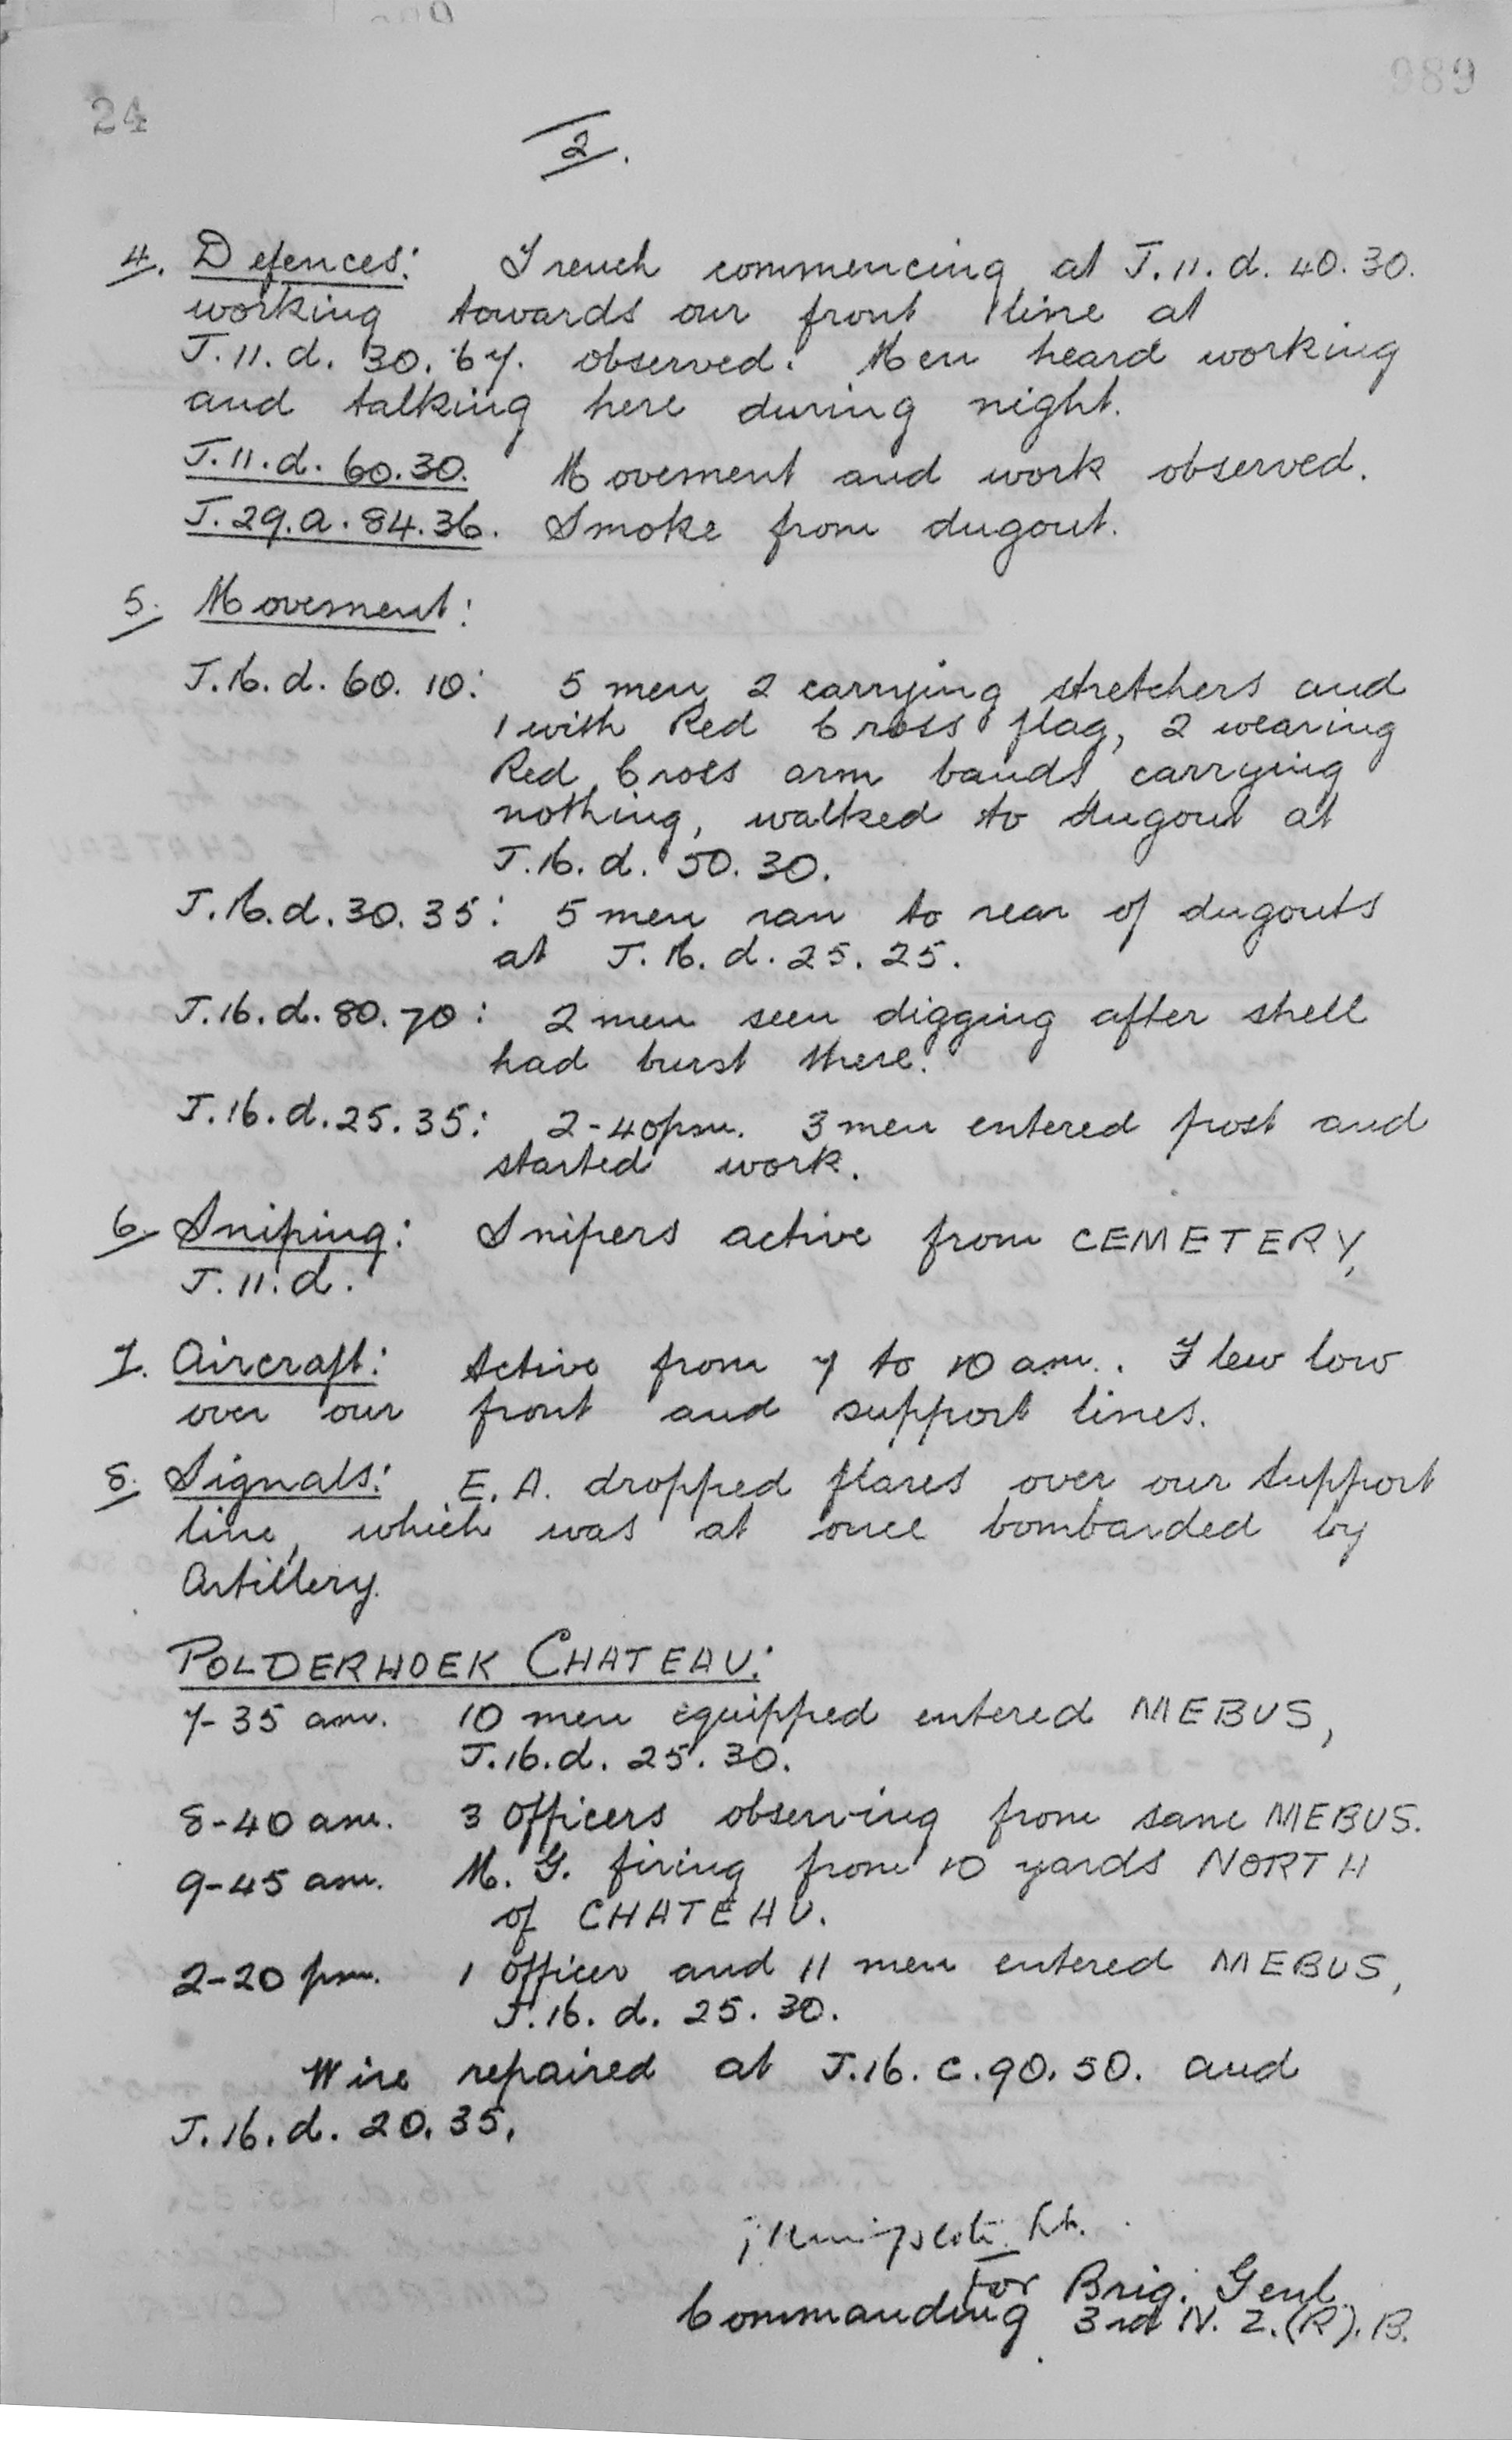 24
989
2.
4. Defences: Trench commencing at J.11.d. 40.30.
working towards our front line at
J.11.d. 30.67. observed. Men heard working
and talking here during night.
J.11.d. 60.30. Movement and work observed.
J.29.a.84.36. Smoke from dugout.
5. Movement:
J.16.d. 60. 10: 5 men, 2 carrying stretchers and
1 with Red Cross flag, 2 wearing
Red Cross arm bands carrying
nothing, walked to dugout at
J.16.d. 50.30.
J.16.d.30.35: 5 men ran to rear of dugouts
at J.16.d.25.25.
J.16.d.80.70: 2 men seen digging after shell
had burst there.
J.16.d.25.35: 2-40pm. 3 men entered post and
started work.
6. Sniping: Snipers active from CEMETERY,
J.11.d.
7. Aircraft: Active from 7 to 10 am.. Flew low
over our front and support lines.
8. Signals: E.A. dropped flares over our support
line, which was at once bombarded by
Artillery.
POLDERHOEK CHATEAU:
7-35 am. 10 men equipped entered MEBUS,
J.16.d. 25.30.
8-40 am. 3 Officers observing from same MEBUS.
9-45 am. M.G. firing from 10 yards NORTH
of CHATEAU.
2-20 pm. 1 Officer and 11 men entered MEBUS,
J.16.d. 25.30.
Wire repaired at J.16.c.90.50. and
J.16.d. 20.35.
Lt.
For Brig. Genl.
Commanding 3rd N.Z.(R).B.